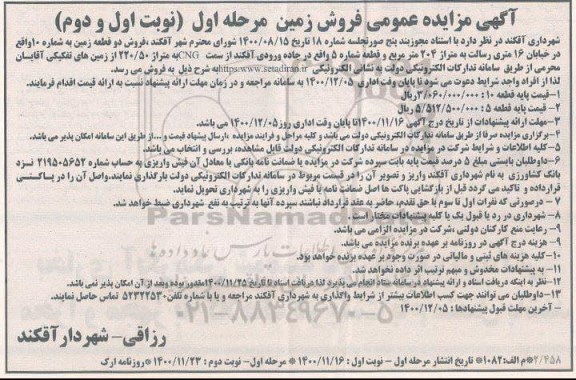 آگهی مزایده عمومی فروش زمین مرحله اول (نوبت اول و دوم)
شهرداری آقکند در نظر دارد با استناد مجوزبند پنج صورتجلسه شماره ۱۸ تاریخ ۱۴۰۰/۰۸/۱۵ شورای محترم شهر آقکند ،فروش دو قطعه زمین به شماره ۱۰واقع
در خیابان ۱۶ متری رسالت به متراژ ۲۰۳ متر مربع و قطعه شماره ۵ واقع در جاده ورودی آقکند از سمت CNGبه متراژ ۲۲۰/۵۰ از زمین های تفکیکی آقایان
محرمی از طریق سامانه تدارکات الکترونیکی دولت به نشانی الکترونیکی https:www.setadiran.ir به شرح ذیل به فروش می رسد.
لذا از افراد واجد شرایط دعوت می شود تا پایان وقت اداری ۱۴۰۰/۱۲/۰۵ به سامانه مراجعه و در زمان مهلت ارائه پیشنهاد نسبت به ارائه قیمت اقدام فرمایند.
۱- قیمت پایه قطعه ۱۰: ۳/۶۶۰/۰۰۰/۰۰۰ریال
۲- قیمت پایه قطعه ۵ :۵/۵۱۲/۵۰۰/۰۰۰ ریال
۳-مهلت ارائه پیشنهادات از تاریخ درج آگهی ۱۴۰۰/۱۱/۱۶تا پایان وقت اداری روز۱۴۰۰/۱۲/۰۵ می باشد.
۴-برگزاری مزایده صرفا از طریق سامانه تدارکات الکترونیکی دولت می باشد و کلیه مراحل و فرایند مزایده ،ارسال پیشنهاد قیمت و ...از طریق این سامانه امکان پذیر می باشد.
۵-کلیه اطلاعات و شرایط شرکت در مزایده در سامانه تدارکات الکترونیکی دولت قابل مشاهده، بررسی و انتخاب می باشد.
۶-داوطلبان بایستی مبلغ ۵ درصد قیمت پایه بابت سپرده شرکت در مزایده یا ضمانت نامه بانکی یا معادل آن فیش واریزی به حساب شماره ۲۱۹۵۰۵۶۵۲ نزد
بانک کشاورزی به نام شهرداری آقکند واریز و تصویر آن را در قسمت مربوط در سامانه تدارکات الکترونیکی دولت بارگذاری نمایند.واصل آن را در پاکستی
قرارداده و تاکید می گردد قبل از بازگشایی پاکت ها اصل ضمانت نامه یا فیش واریزی را به شهرداری تحویل نماید.
۷- درصورتی که نفرات اول تا سوم با حق تقدم، حاضر به عقد قرارداد نباشند سپرده آنها به ترتیب به نفع شهرداری ضبط خواهد شد.
۸- شهرداری در رد یا قبول یک یا کلیه پیشنهادات مختار است.
۹- رعایت منع کارکنان دولتی ،شرکت در مزایده الزامی می باشد.
۹- هزینه درج آگهی در روزنامه بر عهده برنده مزایده می باشد.
۱۰-کلیه هزینه های ثبتی و مالیاتی در صورت وجود بر عهده برنده خواهد بود.
۱۱- به پیشنهادات مخدوش و مبهم ترتیب اثر داده نخواهد شد.
۱۲-نظر به اینکه دریافت اسناد و ارائه پیشنهاد در سامانه ستاد انجام می پذیرد لذا دریافت اسناد تا تاریخ ۱۴۰۰/۱۱/۲۵مقدوربوده وبعد از آن امکان پذیر نمی باشد.
۱۳-داوطلبان می توانند جهت کسب اطلاعات بیشتر از شرایط واگذاری به شهرداری آقکند مراجعه و یا با شماره تلفن ۵۲۳۲۲۵۳۰ تماس حاصل نمایند.
- آخرین مهلت قبول پیشنهادها : ۱۴۰۰/۱۲/۰۵
رزاقی- شهردار آقکند
۲/۴۵۸*م الف:۱۰۸۲* تاریخ انتشار مرحله اول - نوبت اول : ۱۴۰۰/۱۱/۱۶ * مرحله اول- نوبت دوم : ۱۴۰۰/۱۱/۲۳ *روزنامه ارک